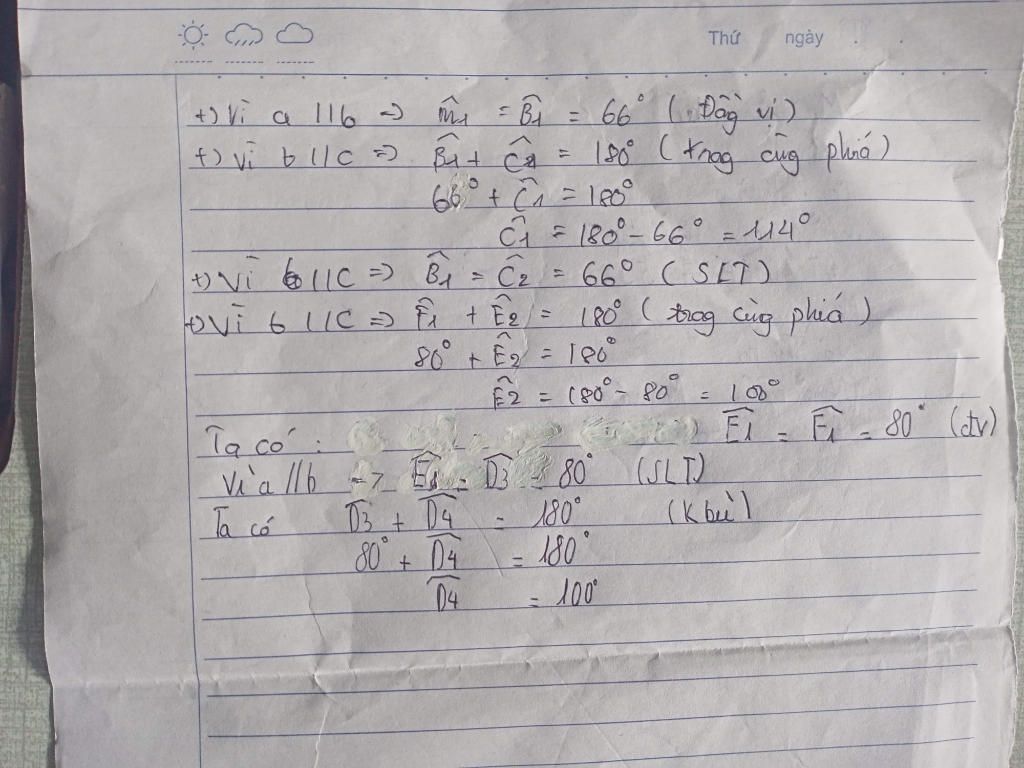 Thứ ngày
+) Vì a // b => m̂1 = B̂1 = 66° (Đồng vị)
+) Vì b // c => B̂1 + Ĉ1 = 180° (trog cùg phiá)
66° + Ĉ1 = 180°
Ĉ1 = 180° - 66° = 114°
+) Vì b // c => B̂1 = Ĉ2 = 66° (SLT)
+) Vì b // c => F̂1 + Ê2 = 180° (trog cùg phiá)
80° + Ê2 = 180°
Ê2 = 180° - 80° = 100°
Ta có : Ê1 = F̂1 = 80° (đv)
Vì a // b => Ê1 = D̂3 = 80° (SLT)
Ta có D̂3 + D̂4 = 180° (K bù)
80° + D̂4 = 180°
D̂4 = 100°